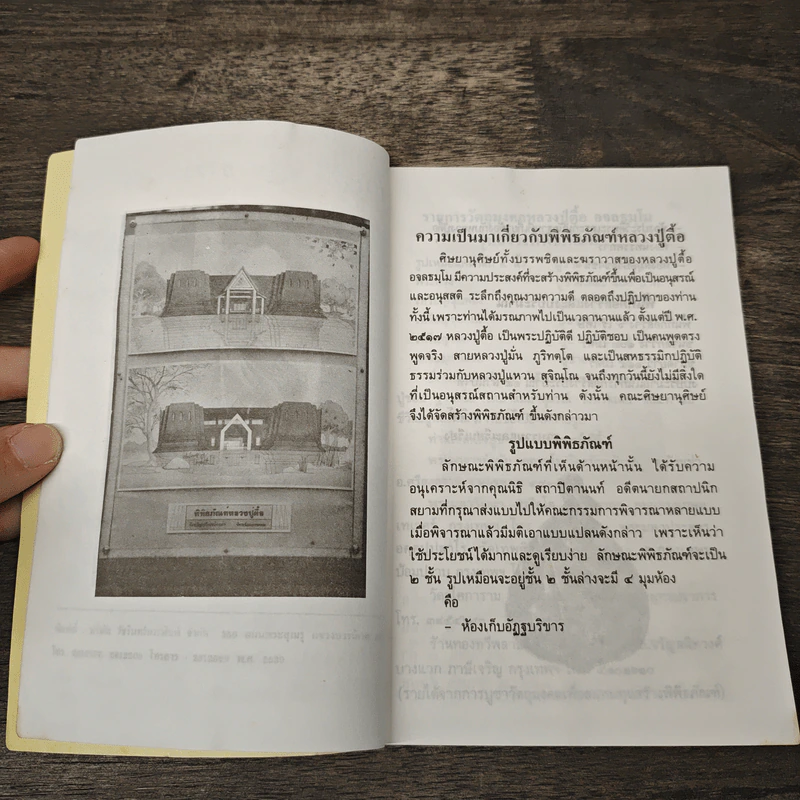 พิพิธภัณฑ์หลวงปู่ตื้อ
ความเป็นมาเกี่ยวกับพิพิธภัณฑ์หลวงปู่ตื้อ
ศิษยานุศิษย์ทั้งบรรพชิตและฆราวาสของหลวงปู่ตื้อ
อจลธมฺโม มีความประสงค์ที่จะสร้างพิพิธภัณฑ์ขึ้นเพื่อเป็นอนุสรณ์
และอนุสสติ ระลึกถึงคุณงามความดี ตลอดถึงปฏิปทาของท่าน
ทั้งนี้ เพราะท่านได้มรณภาพไปเป็นเวลานานแล้ว ตั้งแต่ปี พ.ศ.
๒๕๑๗ หลวงปู่ตื้อ เป็นพระปฏิบัติดี ปฏิบัติชอบ เป็นคนพูดตรง
พูดจริง สายหลวงปู่มั่น ภูริทตฺโต และเป็นสหธรรมิกปฏิบัติ
ธรรมร่วมกับหลวงปู่แหวน สุจิณฺโณ จนถึงทุกวันนี้ยังไม่มีสิ่งใด
ที่เป็นอนุสรณ์สถานสำหรับท่าน ดังนั้น คณะศิษยานุศิษย์
จึงได้จัดสร้างพิพิธภัณฑ์ ขึ้นดังกล่าวมา
รูปแบบพิพิธภัณฑ์
ลักษณะพิพิธภัณฑ์ที่เห็นด้านหน้านั้น ได้รับความ
อนุเคราะห์จากคุณนิธิ สถาปิตานนท์ อดีตนายกสถาปนิก
สยามที่กรุณาส่งแบบไปให้คณะกรรมการพิจารณาหลายแบบ
เมื่อพิจารณาแล้วมีมติเอาแบบแปลนดังกล่าว เพราะเห็นว่า
ใช้ประโยชน์ได้มากและดูเรียบง่าย ลักษณะพิพิธภัณฑ์จะเป็น
๒ ชั้น รูปเหมือนจะอยู่ชั้น ๒ ชั้นล่างจะมี ๔ มุมห้อง
คือ
- ห้องเก็บอัฏฐบริขาร